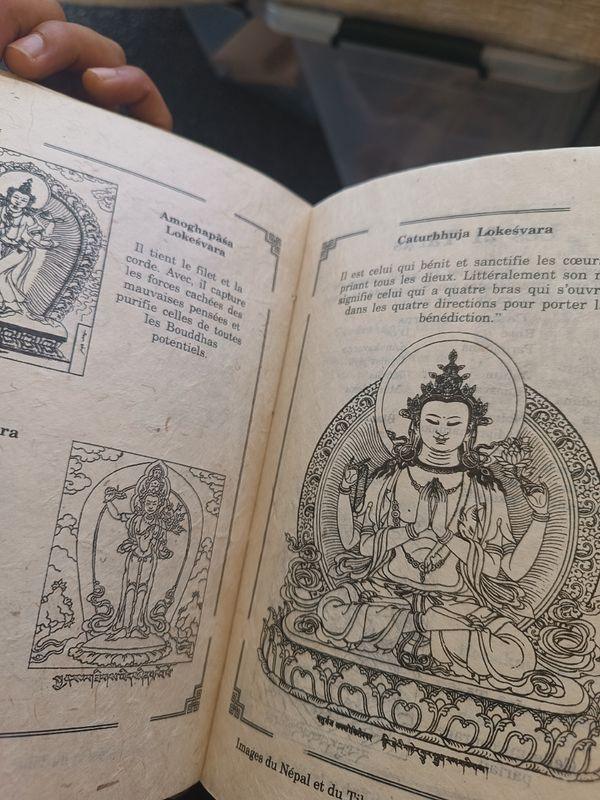 Amoghapāśa
Lokeśvara
Il tient le filet et la
corde. Avec, il capture
les forces cachées des
mauvaises pensées et
purifie celles de toutes
les Bouddhas
potentiels.
ra
Caturbhuja Lokeśvara
Il est celui qui bénit et sanctifie les cœur
priant tous les dieux. Littéralement son n
signifie celui qui a quatre bras qui s'ouvr
dans les quatre directions pour porter l
bénédiction."
Images du Népal et du Ti